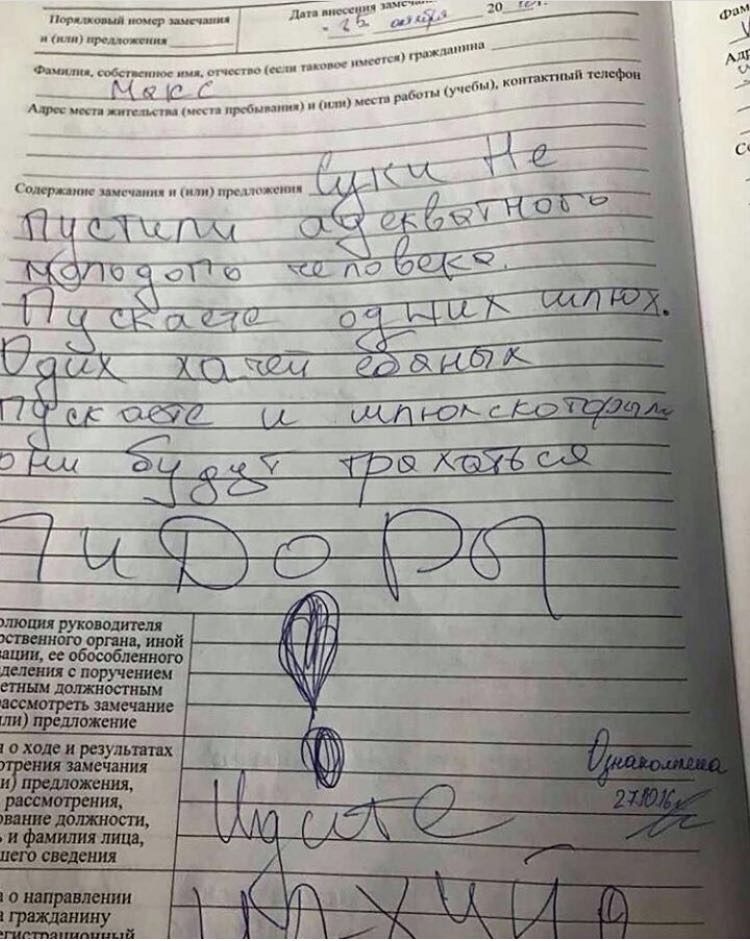 Порядковый номер замечания
и (или) предложения
Дата внесения замеч
" 25 октября 20
Фамилия, собственное имя, отчество (если таковое имеется) гражданина
Макс
Адрес места жительства (места пребывания) и (или) места работы (учебы), контактный телефон
Содержание замечания и (или) предложения Суки Не
пустили адекватного
молодого человека.
Пускаете одних шлюх.
Одих хачей ебаных
пускаете и шлюх скоторыми
они будут трахаться
ПИДОРЫ
!
олюция руководителя
рственного органа, иной
зации, ее обособленного
деления с поручением
етным должностным
рассмотреть замечание
или) предложение
я о ходе и результатах
отрения замечания
и) предложения,
рассмотрения,
ование должности,
ь и фамилия лица,
шего сведения
Ознакомлена
27.10.16
Идите
а о направлении
а гражданину
егистрационный
на хуй
Фам
Адр
Со